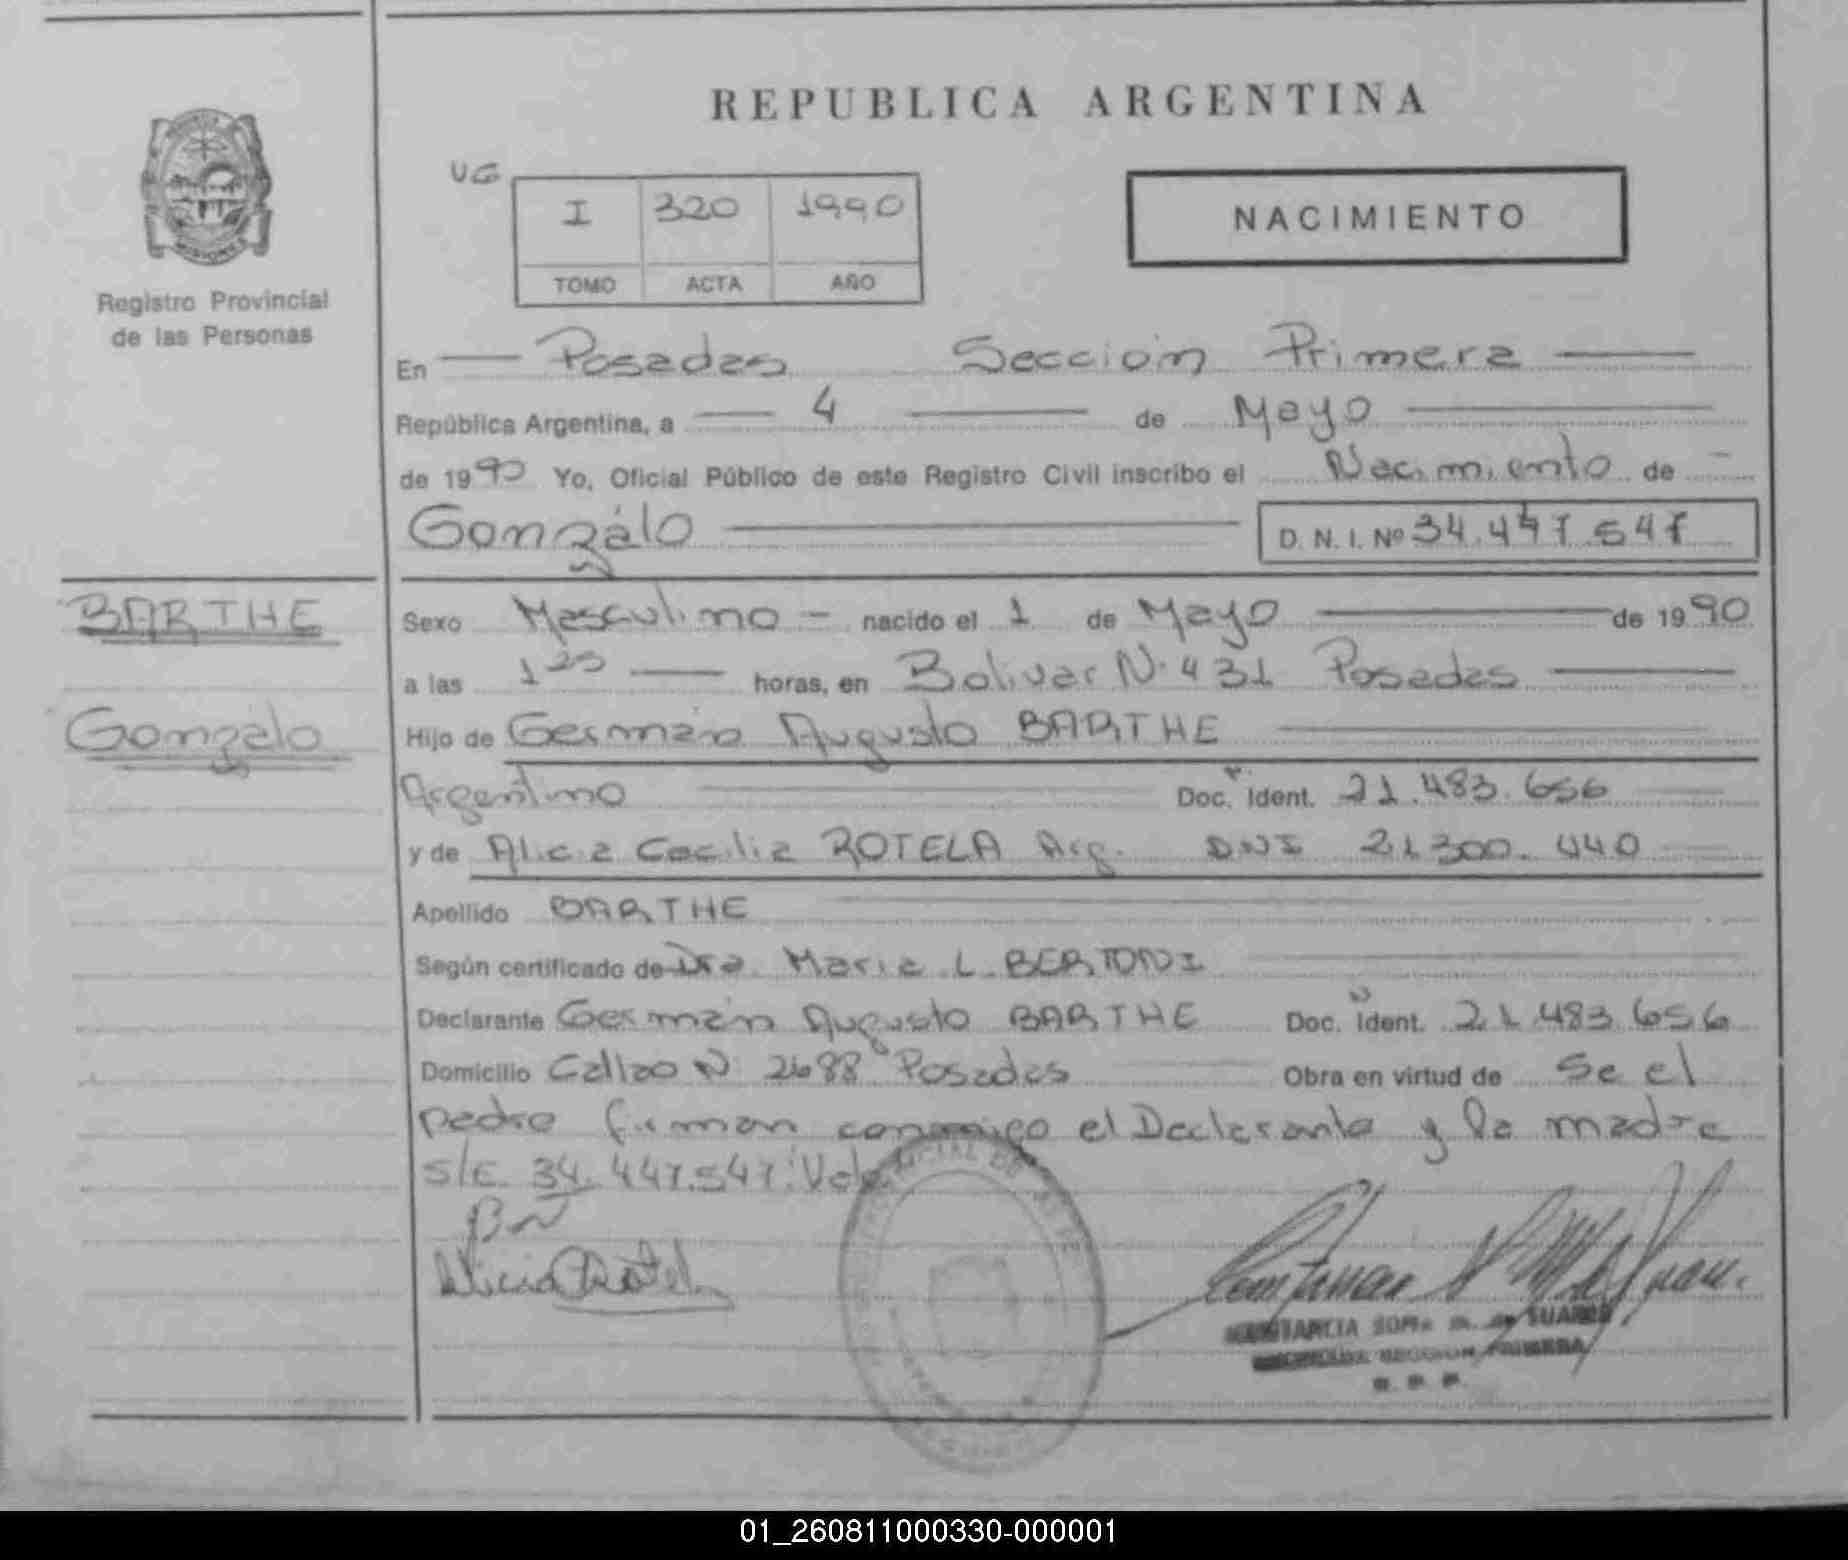 REPUBLICA ARGENTINA
UG
I 320 1990
TOMO ACTA AÑO
NACIMIENTO
MISIONES
Registro Provincial
de las Personas
En Posadas Sección Primera
República Argentina, a 4 de Mayo
de 1990 Yo, Oficial Público de este Registro Civil inscribo el Nacimiento de
Gonzálo
D. N. I. Nº 34.447.547
BARTHE
Gonzalo
Sexo Masculino - nacido el 1 de Mayo de 1990
a las 1 horas, en Bolivar N. 431 Posadas
Hijo de Germán Augusto BARTHE
Argentino Doc. Ident. 21.483.656
y de Alicia Cecilia ROTELA Arg. DNI 21300.440
Apellido BARTHE
Según certificado de Dra. Maria L. BERTONI
Declarante Germán Augusto BARTHE Doc. Ident. 21.483.656
Domicilio Callao N 2688 Posadas Obra en virtud de Se el
padre firman conmigo el Declarante y la madre
S/E. 34.447.547: Vale
Alicia Rotela
SUAREZ
SECCION PRIMERA
R. P. P.
01_260811000330-000001